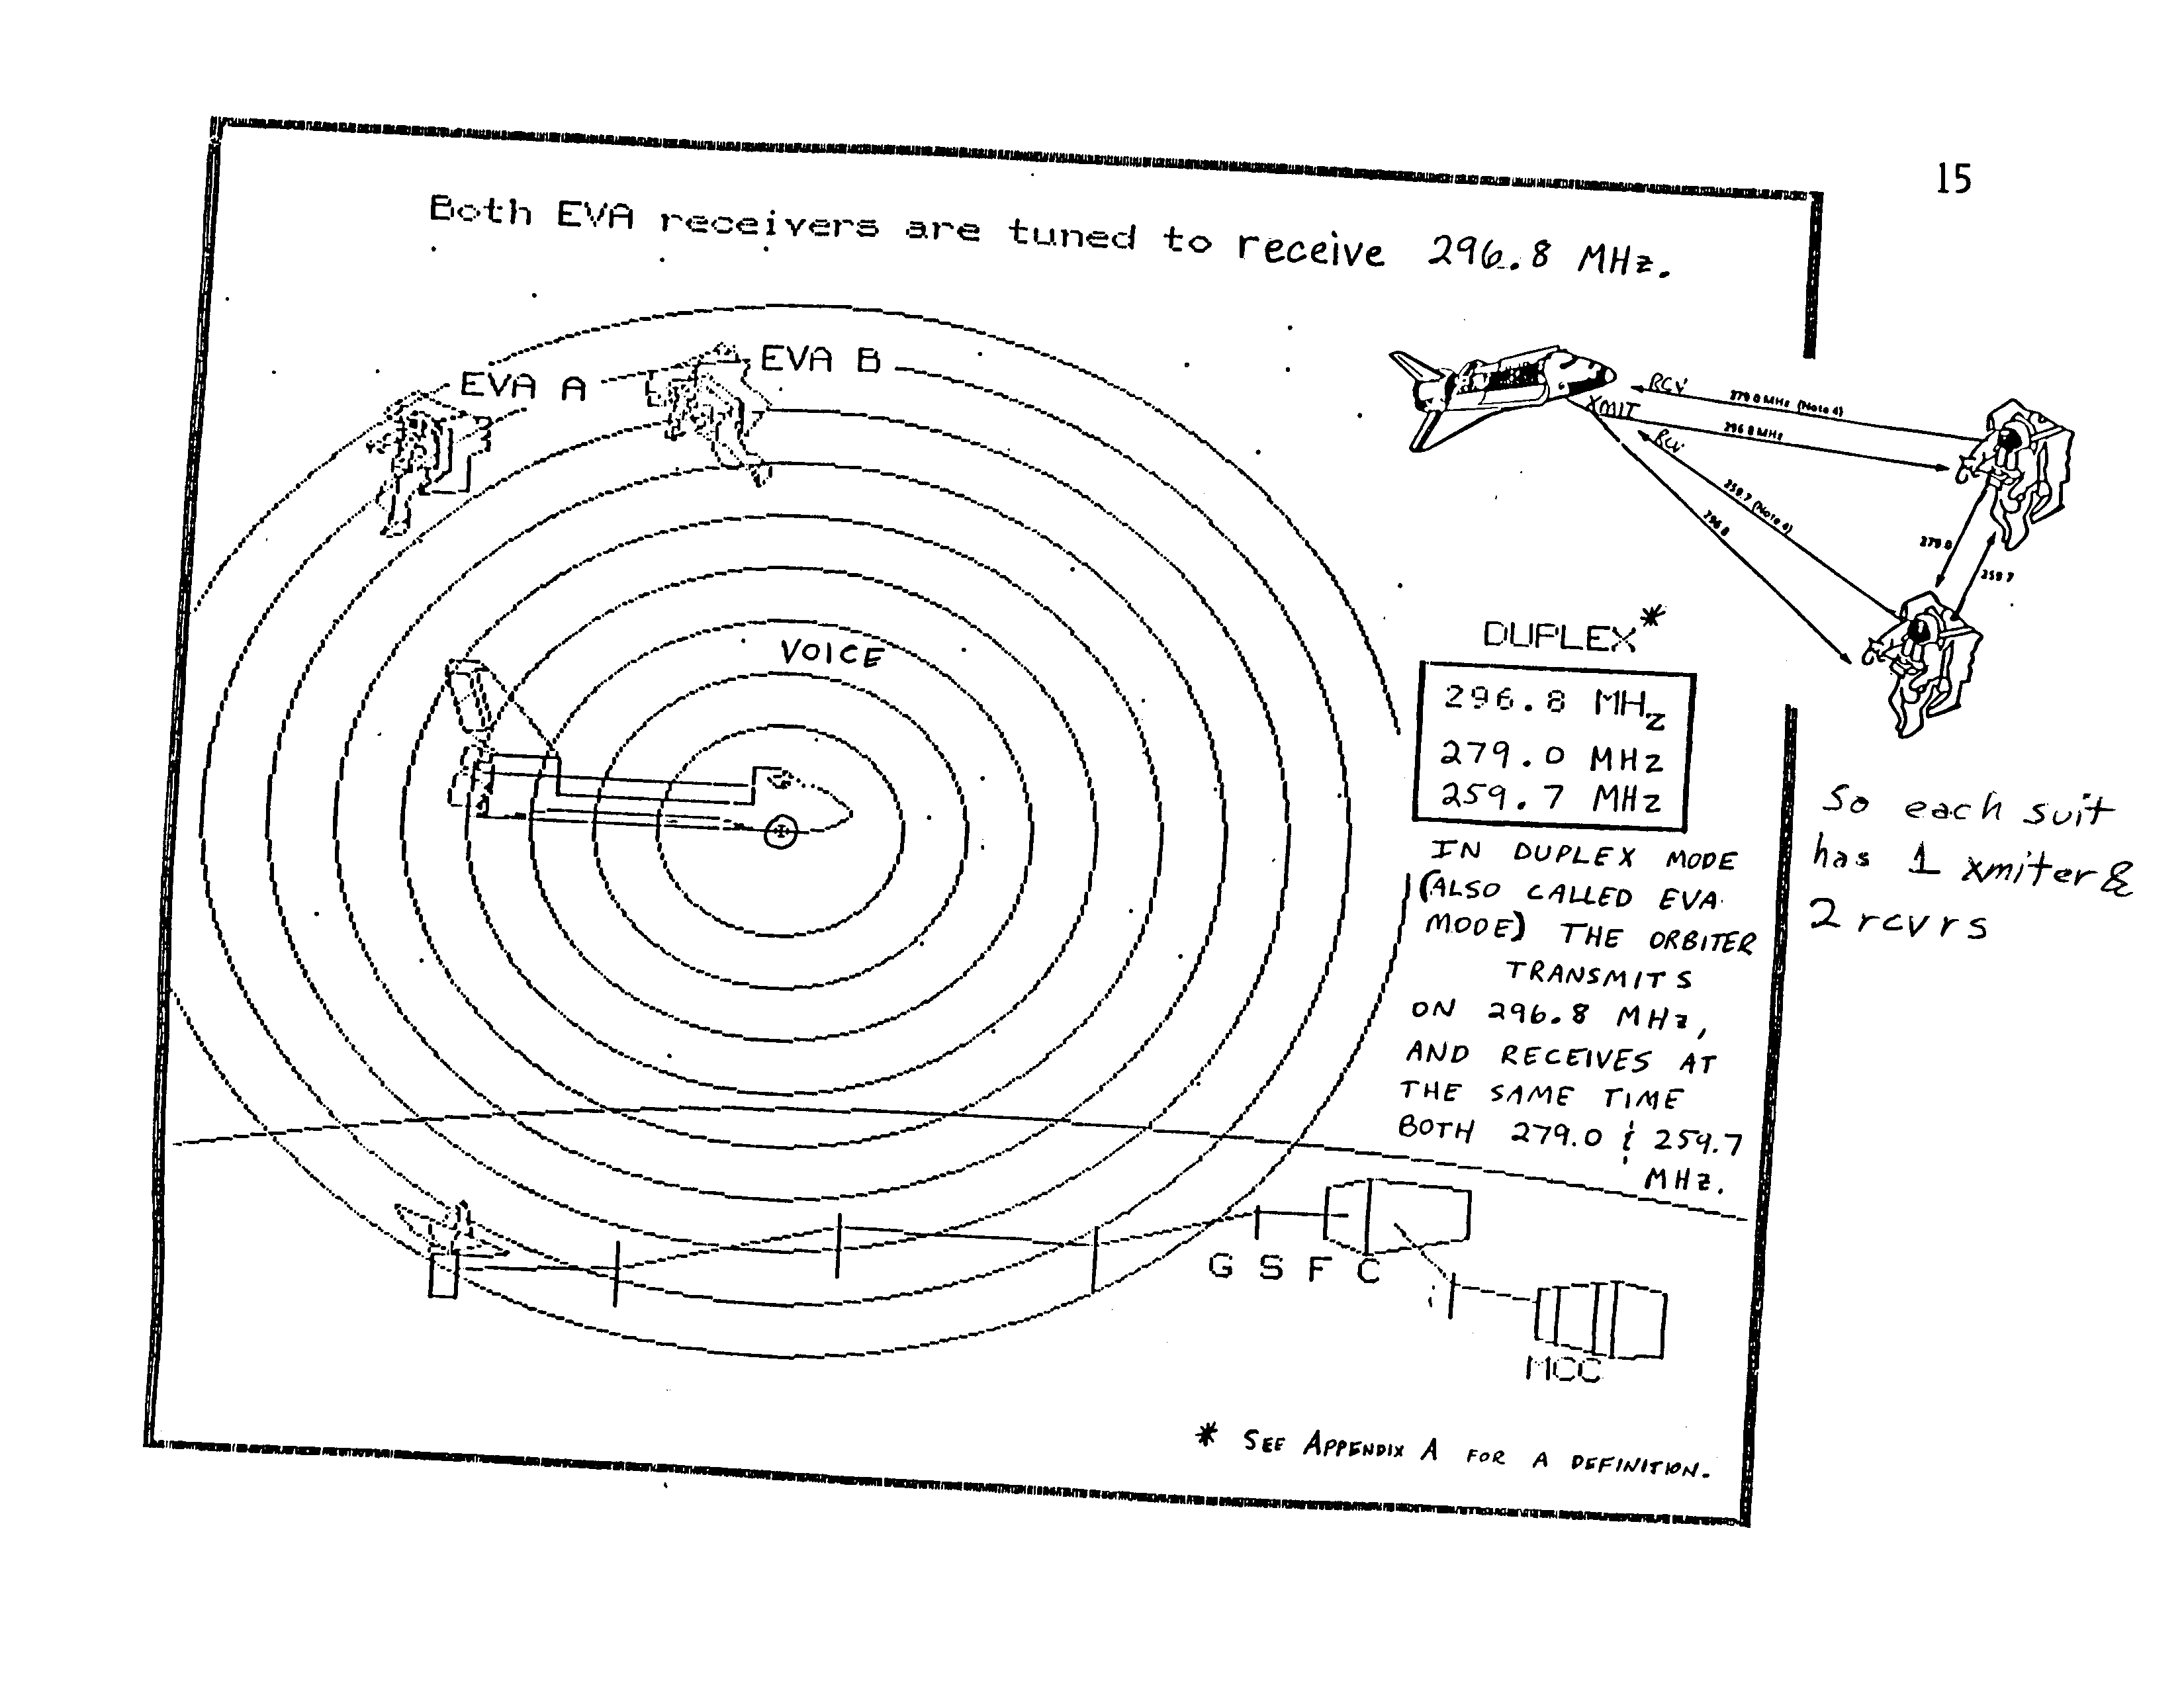 15
Both EVA receivers are tuned to receive 296.8 MHz.
EVA A
EVA B
RCV
279.0 MHz (Note 4)
XMIT
296.8 MHz
RCV
259.7 (Note 4)
296.8
279.0
259.7
VOICE
DUPLEX*
296.8 MHz
279.0 MHz
259.7 MHz
IN DUPLEX MODE
(ALSO CALLED EVA
MODE) THE ORBITER
TRANSMITS
ON 296.8 MHz,
AND RECEIVES AT
THE SAME TIME
BOTH 279.0 & 259.7
MHz.
So each suit
has 1 xmiter &
2 rcvrs
GSFC
MCC
* SEE APPENDIX A FOR A DEFINITION.